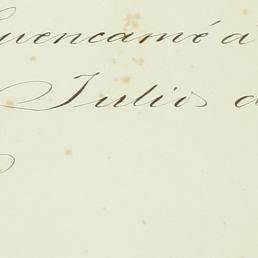 Cuencamé á
Julio d